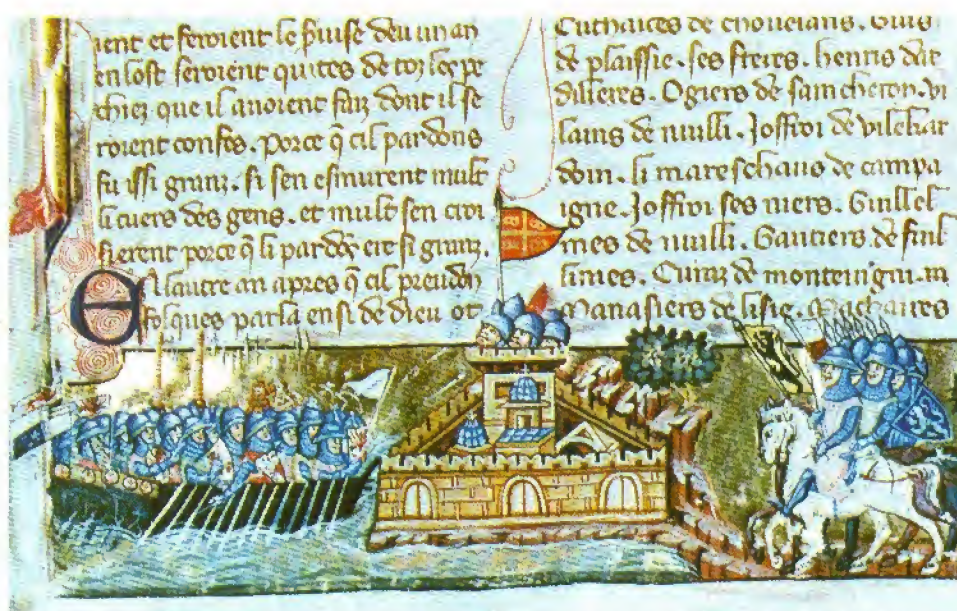 ient et feroient le seruise deu un an
en lost seroient quites de toz les pe
chiez que il auoient faiz dont il se
roient confes. Porce q̄ cil pardons
fu issi granz. si sen esmurent mult
li cuers des gens. et mult sen croi
sierent porce q̄ li pardōs ere si granz.
E A lautre an apres q̄ cil preudō
folques parla ensi de dieu ot
de plaissie. ses freres. henris dar
dilleres. Ogiers de sain cheron. vi
lains de nuilli. Joffroi de vilehar
doin. li mareschaus de campa
igne. Joffroi ses niers. Guillel
mes de nuilli. Gautiers de fuil
limes. de monteingni. m
Manasiers de lisle. Machaires